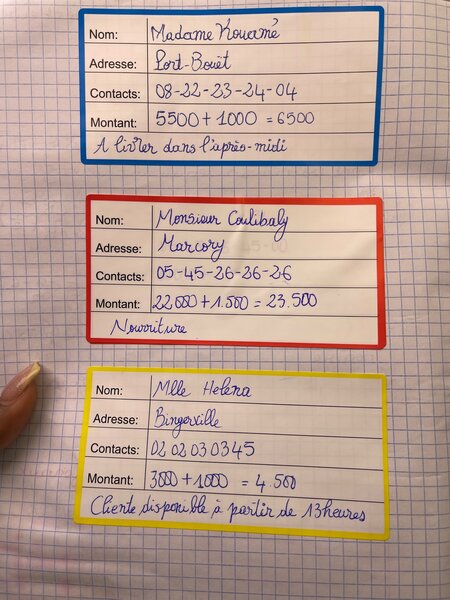 Nom: Madame Kouamé
Adresse: Port-Bouët
Contacts: 08-22-23-24-04
Montant: 5500 + 1000 = 6500
A livrer dans l'après-midi
Nom: Monsieur Coulibaly
Adresse: Marcory
Contacts: 05-45-26-26-26
Montant: 22 000 + 1.500 = 23.500
Nourriture
Nom: Mlle Helena
Adresse: Bingerville
Contacts: 02 02 03 03 45
Montant: 3000 + 1000 = 4.500
Cliente disponible à partir de 13heures